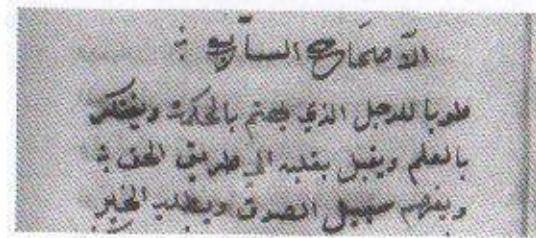 الاصحاح السابع
طوبا للرجل الذي يهتم بالحكمة ويفتكر
بالعلم ويقبل بقلبه الي طريق الحق
ويفهم سبيل الصدق ويطلب الخير